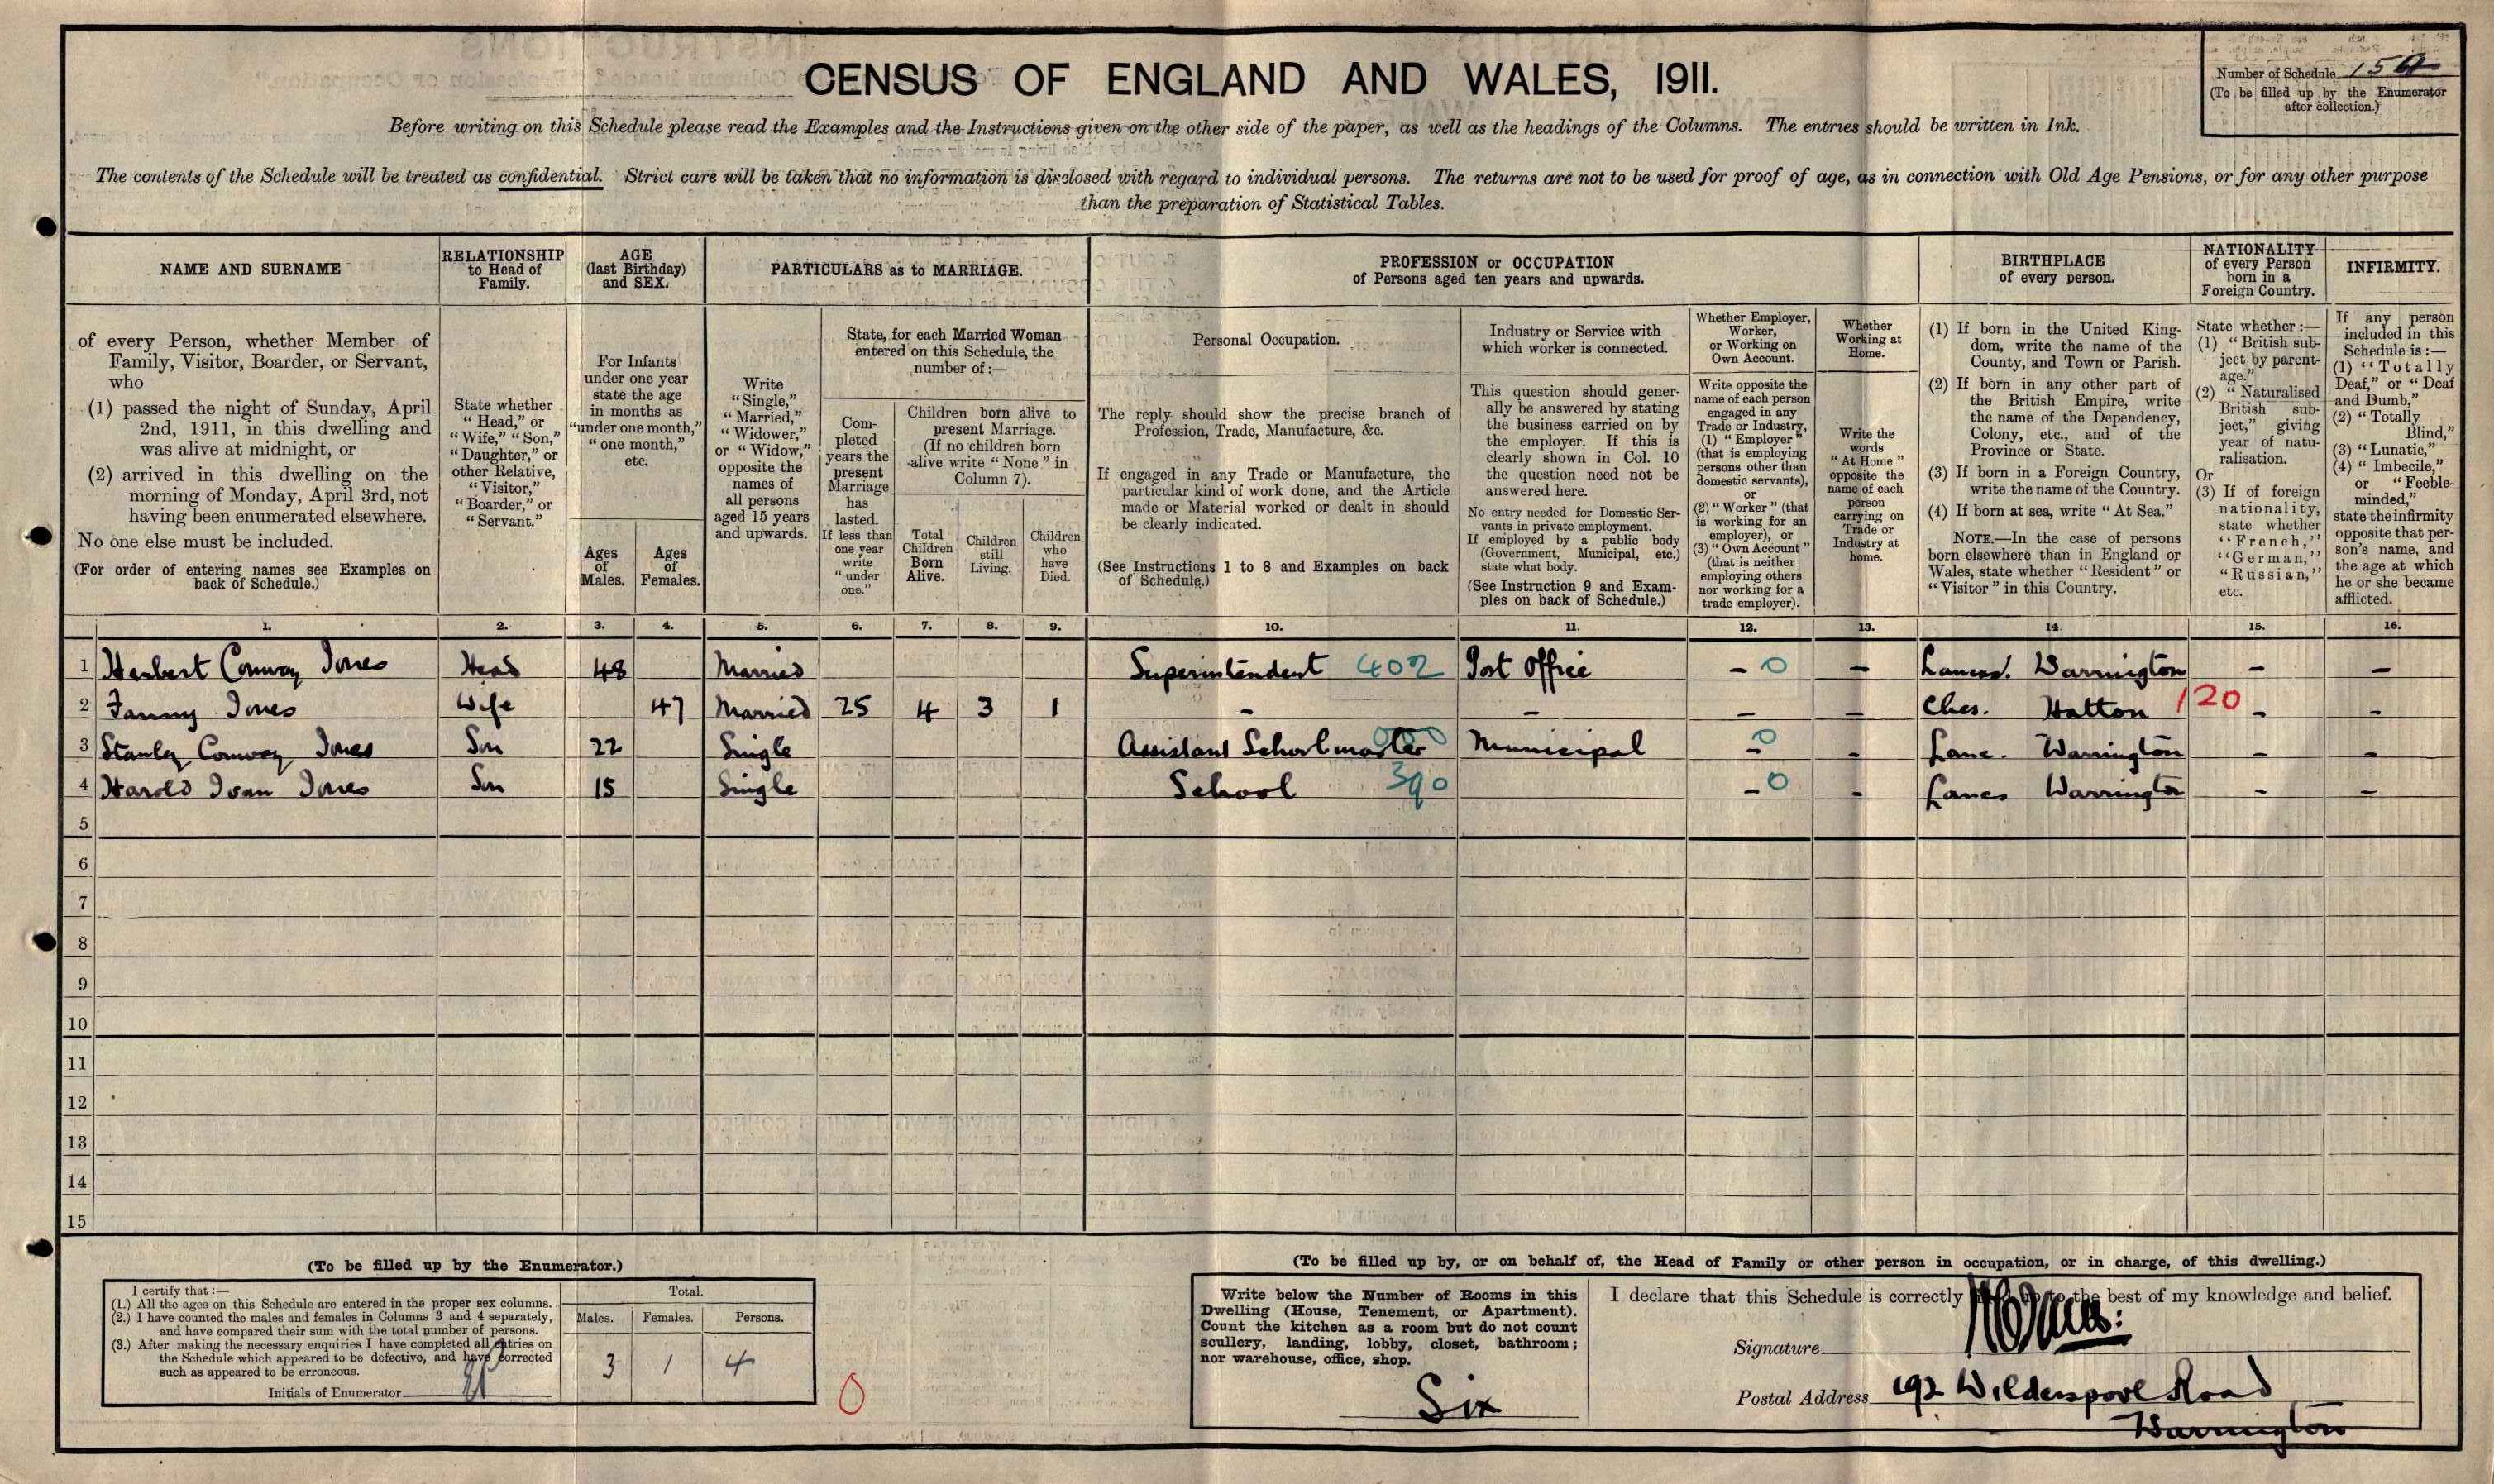 CENSUS OF ENGLAND AND WALES, 1911.
Number of Schedule 154
(To be filled up by the Enumerator
after collection.)
Before writing on this Schedule please read the Examples and the Instructions given on the other side of the paper, as well as the headings of the Columns. The entries should be written in Ink.
The contents of the Schedule will be treated as confidential. Strict care will be taken that no information is disclosed with regard to individual persons. The returns are not to be used for proof of age, as in connection with Old Age Pensions, or for any other purpose
than the preparation of Statistical Tables.
NAME AND SURNAME
of every Person, whether Member of
Family, Visitor, Boarder, or Servant,
who
(1) passed the night of Sunday, April
2nd, 1911, in this dwelling and
was alive at midnight, or
(2) arrived in this dwelling on the
morning of Monday, April 3rd, not
having been enumerated elsewhere.
No one else must be included.
(For order of entering names see Examples on
back of Schedule.)
RELATIONSHIP
to Head of
Family.
State whether
"Head," or
"Wife," "Son,"
"Daughter," or
other Relative,
"Visitor,"
"Boarder," or
"Servant."
AGE
(last Birthday)
and SEX.
For Infants
under one year
state the age
in months as
"under one month,"
"one month,"
etc.
Ages
of
Males.
Ages
of
Females.
PARTICULARS as to MARRIAGE.
Write
"Single,"
"Married,"
"Widower,"
or "Widow,"
opposite the
names of
all persons
aged 15 years
and upwards.
State, for each Married Woman
entered on this Schedule, the
number of:—
Com-
pleted
years the
present
Marriage
has
lasted.
If less than
one year
write
"under
one."
Children born alive to
present Marriage.
(If no children born
alive write "None" in
Column 7).
Total
Children
Born
Alive.
Children
still
Living.
Children
who
have
Died.
PROFESSION or OCCUPATION
of Persons aged ten years and upwards.
Personal Occupation.
The reply should show the precise branch of
Profession, Trade, Manufacture, &c.
If engaged in any Trade or Manufacture, the
particular kind of work done, and the Article
made or Material worked or dealt in should
be clearly indicated.
(See Instructions 1 to 8 and Examples on back
of Schedule.)
Industry or Service with
which worker is connected.
This question should gener-
ally be answered by stating
the business carried on by
the employer. If this is
clearly shown in Col. 10
the question need not be
answered here.
No entry needed for Domestic Ser-
vants in private employment.
If employed by a public body
(Government, Municipal, etc.)
state what body.
(See Instruction 9 and Exam-
ples on back of Schedule.)
Whether Employer,
Worker,
or Working on
Own Account.
Write opposite the
name of each person
engaged in any
Trade or Industry,
(1) "Employer"
(that is employing
persons other than
domestic servants),
or
(2) "Worker" (that
is working for an
employer), or
(3) "Own Account"
(that is neither
employing others
nor working for a
trade employer).
Whether
Working at
Home.
Write the
words
"At Home"
opposite the
name of each
person
carrying on
Trade or
Industry at
home.
BIRTHPLACE
of every person.
(1) If born in the United King-
dom, write the name of the
County, and Town or Parish.
(2) If born in any other part of
the British Empire, write
the name of the Dependency,
Colony, etc., and of the
Province or State.
(3) If born in a Foreign Country,
write the name of the Country.
(4) If born at sea, write "At Sea."
NOTE.—In the case of persons
born elsewhere than in England or
Wales, state whether "Resident" or
"Visitor" in this Country.
NATIONALITY
of every Person
born in a
Foreign Country.
State whether:—
(1) "British sub-
ject by parent-
age."
(2) "Naturalised
British sub-
ject," giving
year of natu-
ralisation.
Or
(3) If of foreign
nationality,
state whether
"French,"
"German,"
"Russian,"
etc.
INFIRMITY.
If any person
included in this
Schedule is:—
(1) "Totally
Deaf," or "Deaf
and Dumb,"
(2) "Totally
Blind,"
(3) "Lunatic,"
(4) "Imbecile,"
or "Feeble-
minded,"
state the infirmity
opposite that per-
son's name, and
the age at which
he or she became
afflicted.
1. 2. 3. 4. 5. 6. 7. 8. 9. 10. 11. 12. 13. 14. 15. 16.
1 Herbert Conway Jones Head 48 Married Superintendent 402 Post Office – 0 – Lancs. Warrington – –
2 Fanny Jones Wife 47 Married 25 4 3 1 – – – – Ches. Hatton 120 – –
3 Stanley Conway Jones Son 22 Single Assistant Schoolmaster Municipal – 0 – Lanc. Warrington – –
4 Harold Ivan Jones Son 15 Single School 390 – 0 – Lancs Warrington – –
5
6
7
8
9
10
11
12
13
14
15
(To be filled up by the Enumerator.)
I certify that:—
(1.) All the ages on this Schedule are entered in the proper sex columns.
(2.) I have counted the males and females in Columns 3 and 4 separately,
and have compared their sum with the total number of persons.
(3.) After making the necessary enquiries I have completed all entries on
the Schedule which appeared to be defective, and have corrected
such as appeared to be erroneous.
Initials of Enumerator
Total.
Males. Females. Persons.
3 1 4
0
(To be filled up by, or on behalf of, the Head of Family or other person in occupation, or in charge, of this dwelling.)
Write below the Number of Rooms in this
Dwelling (House, Tenement, or Apartment).
Count the kitchen as a room but do not count
scullery, landing, lobby, closet, bathroom;
nor warehouse, office, shop.
Six
I declare that this Schedule is correctly to the best of my knowledge and belief.
Signature
Postal Address 192 Wilderspool Road
Warrington